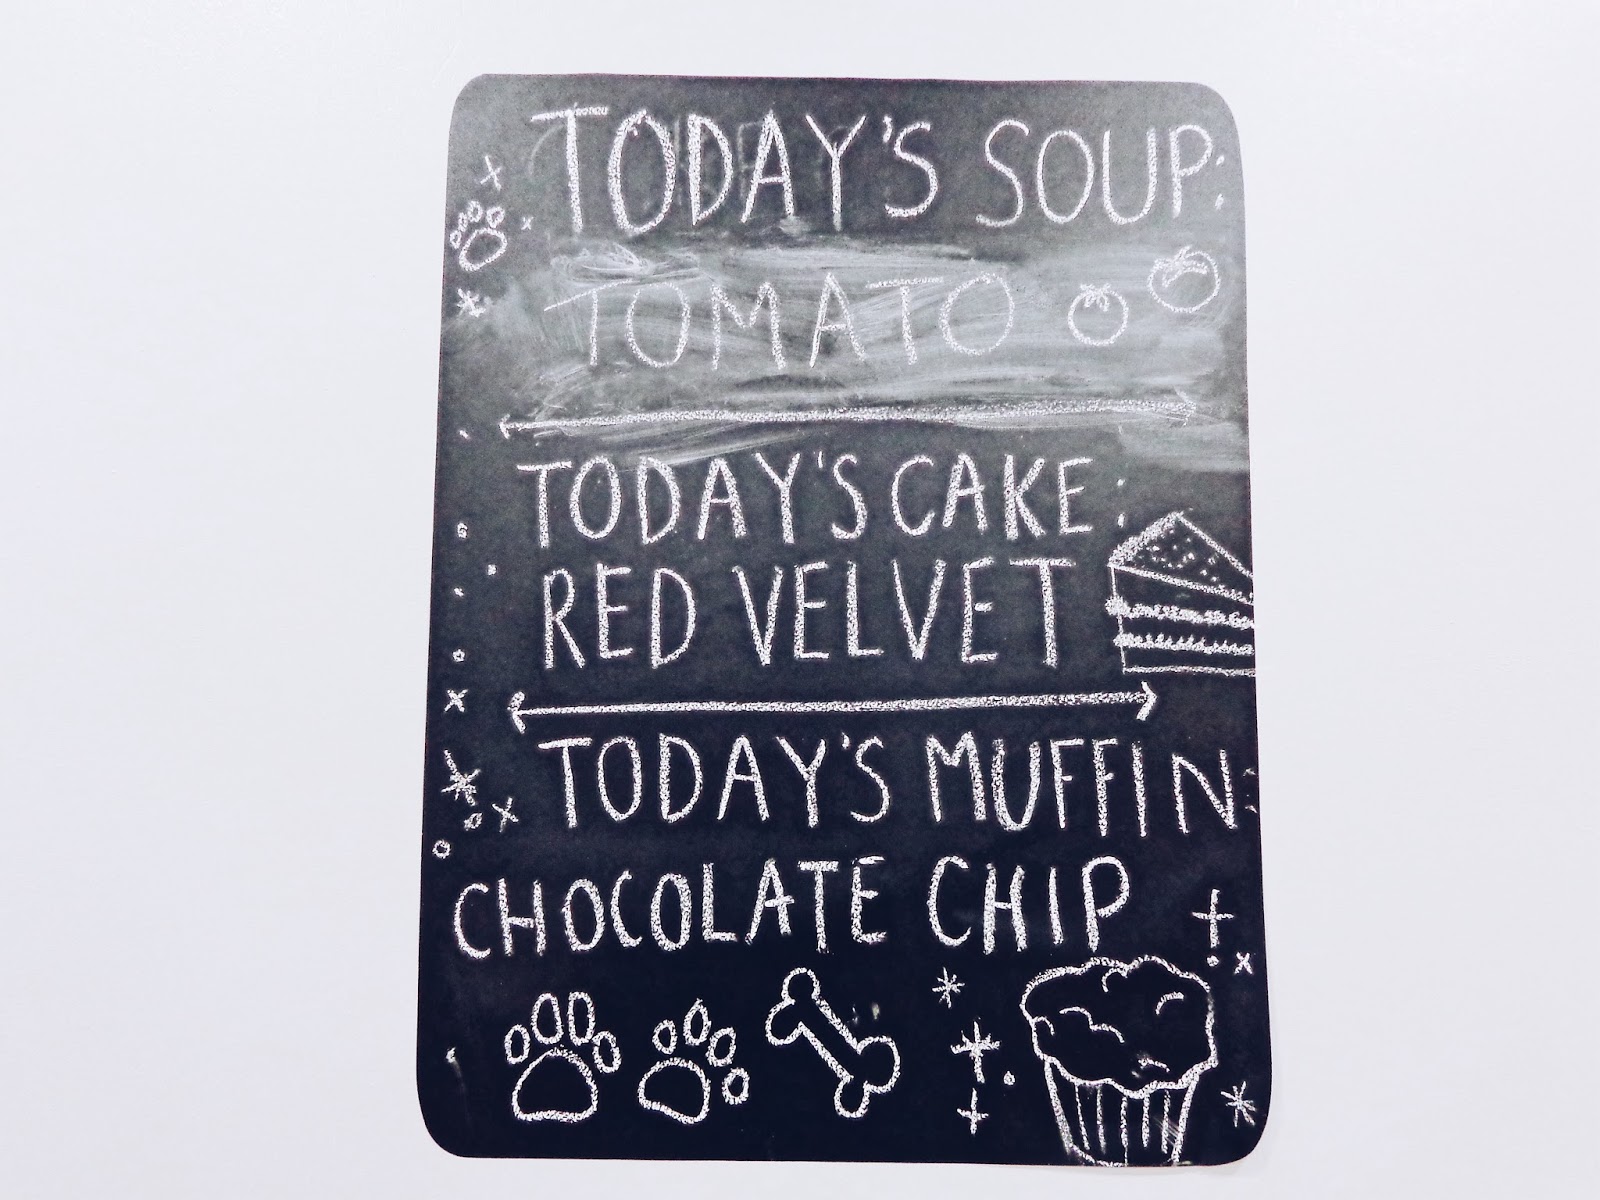 TODAY'S SOUP:
TOMATO
TODAY'S CAKE:
RED VELVET
TODAY'S MUFFIN:
CHOCOLATE CHIP